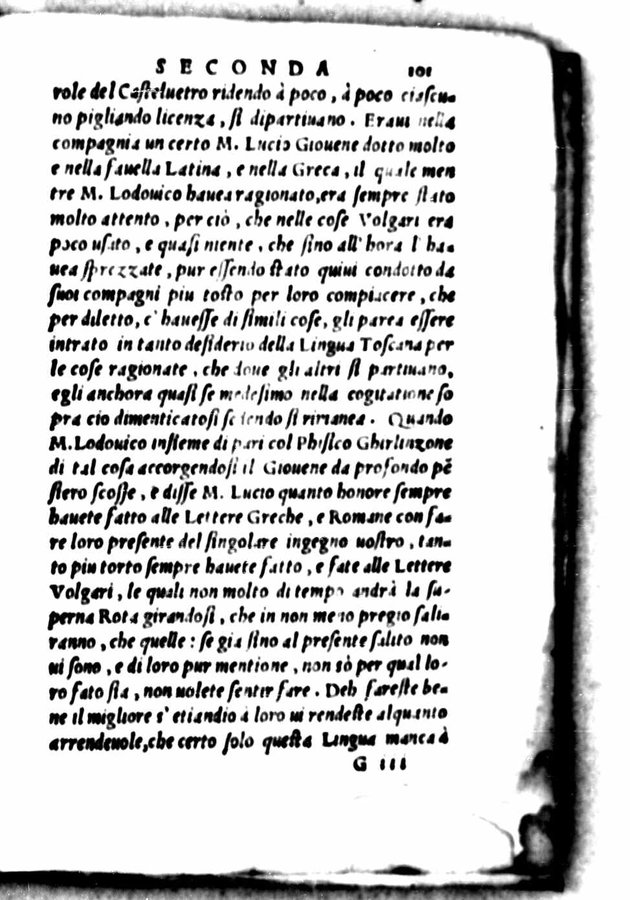 SECONDA 101
role del Casteluetro ridendo à poco, à poco ciascu-
no pigliando licenza, si dipartiuano. Eraui nella
compagnia un certo M. Lucio Giouene dotto molto
e nella fauella Latina, e nella Greca, il quale men
tre M. Lodouico hauea ragionato, era sempre stato
molto attento, per ciò, che nelle cose Volgari era
poco usato, e quasi niente, che sino all'hora l'ha-
uea sprezzate, pur essendo stato quiui condotto da
suoi compagni piu tosto per loro compiacere, che
per diletto, c'hauesse di simili cose, gli parea essere
intrato in tanto desiderio della Lingua Toscana per
le cose ragionate, che doue gli altri si partiuano,
egli anchora quasi se medesimo nella cogitatione so
pra cio dimenticatosi sedendo si rimanea. Quando
M. Lodouico insieme di pari col Phisico Ghirlinzone
di tal cosa accorgendosi il Giouene da profondo pē
siero scosse, e disse M. Lucio quanto honore sempre
hauete fatto alle Lettere Greche, e Romane con fa-
re loro presente del singolare ingegno uostro, tan-
to piu torto sempre hauete fatto, e fate alle Lettere
Volgari, le quali non molto di tempo andrà la su-
perna Rota girandosi, che in non meno pregio sali-
ranno, che quelle: se gia sino al presente salito non
ui sono, e di loro pur mentione, non sò per qual lo-
ro fato sia, non uolete sentir fare. Deh fareste be-
ne il migliore s'etiandio à loro ui rendeste alquanto
arrendeuole, che certo solo questa Lingua manca à
G iii